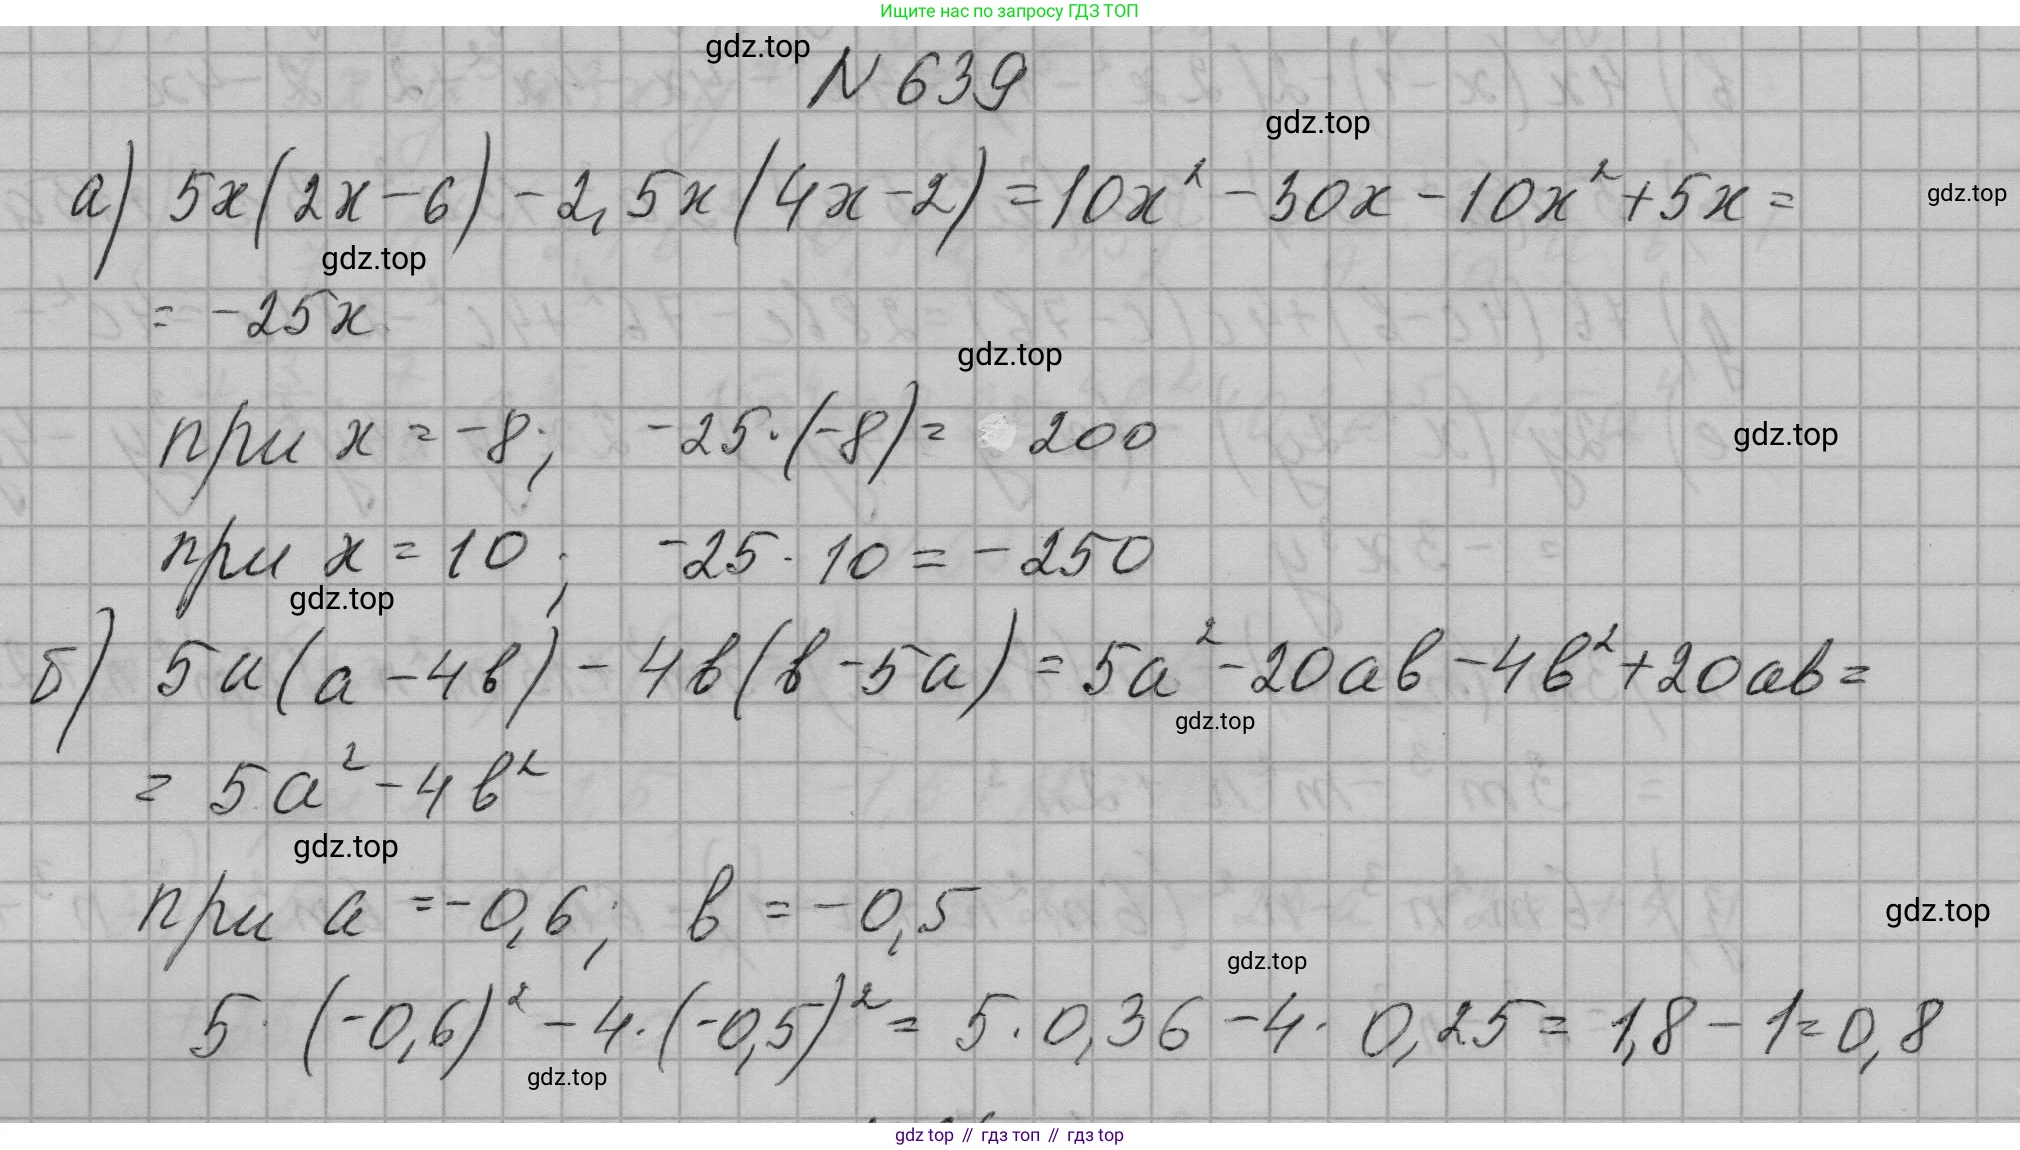 Ищите нас по запросу ГДЗ ТОП
gdz.top
N 639
gdz.top
а) 5x(2x-6)-2,5x(4x-2)=10x²-30x-10x²+5x=
gdz.top
gdz.top
= -25x
gdz.top
при x = -8; -25·(-8)= 200
gdz.top
при x = 10; -25·10 = -250
gdz.top
б) 5a(a-4в)-4в(в-5a)=5a²-20aв-4в²+20aв=
gdz.top
= 5a²-4в²
gdz.top
при a = -0,6; в = -0,5
gdz.top
gdz.top
5·(-0,6)²-4·(-0,5)²= 5·0,36-4·0,25= 1,8-1=0,8
gdz.top
gdz top // гдз топ // гдз top